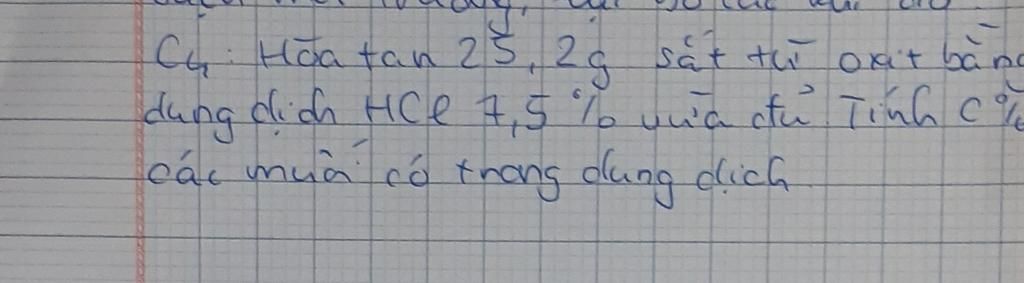 C4: Hòa tan 25,2g sắt từ oxit bằng
dung dịch HCl 7,5% vừa đủ Tính C%
các muối có trong dung dịch